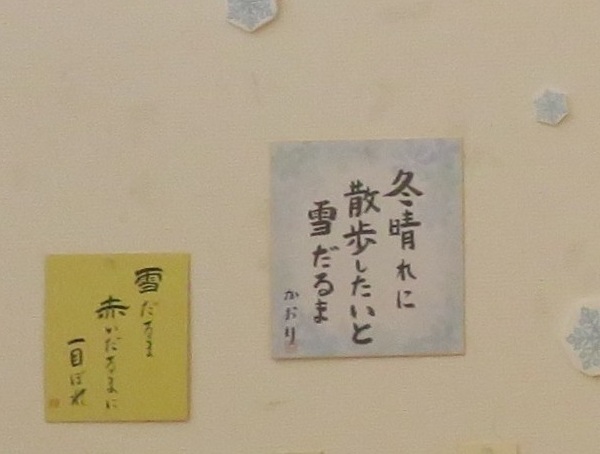 冬晴れに
散歩したいと
雪だるま
かおり
雪だるま
赤いだるまに
一目ぼれ